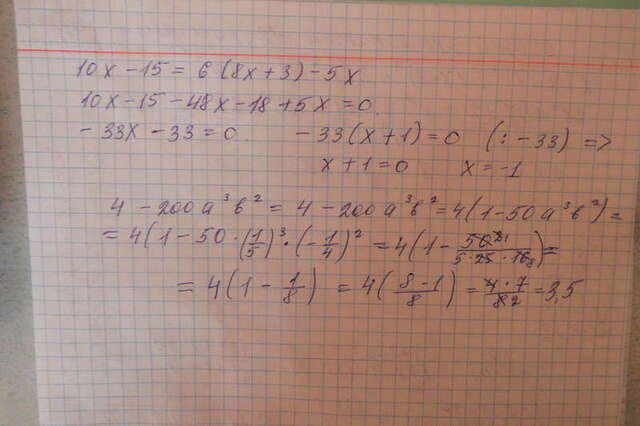 10x - 15 = 6(8x + 3) - 5x
10x - 15 - 48x - 18 + 5x = 0.
- 33x - 33 = 0. - 33(x + 1) = 0 (: - 33) =>
x + 1 = 0 x = -1
4 - 200a³b² = 4 - 200a³b² = 4(1 - 50a³b²) =
= 4(1 - 50 · (1/5)³ · (-1/4)² = 4(1 - 50/(5 · 25 · 16)) =
= 4(1 - 1/8) = 4((8 - 1)/8) = (4 · 7)/(8 2) = 3,5